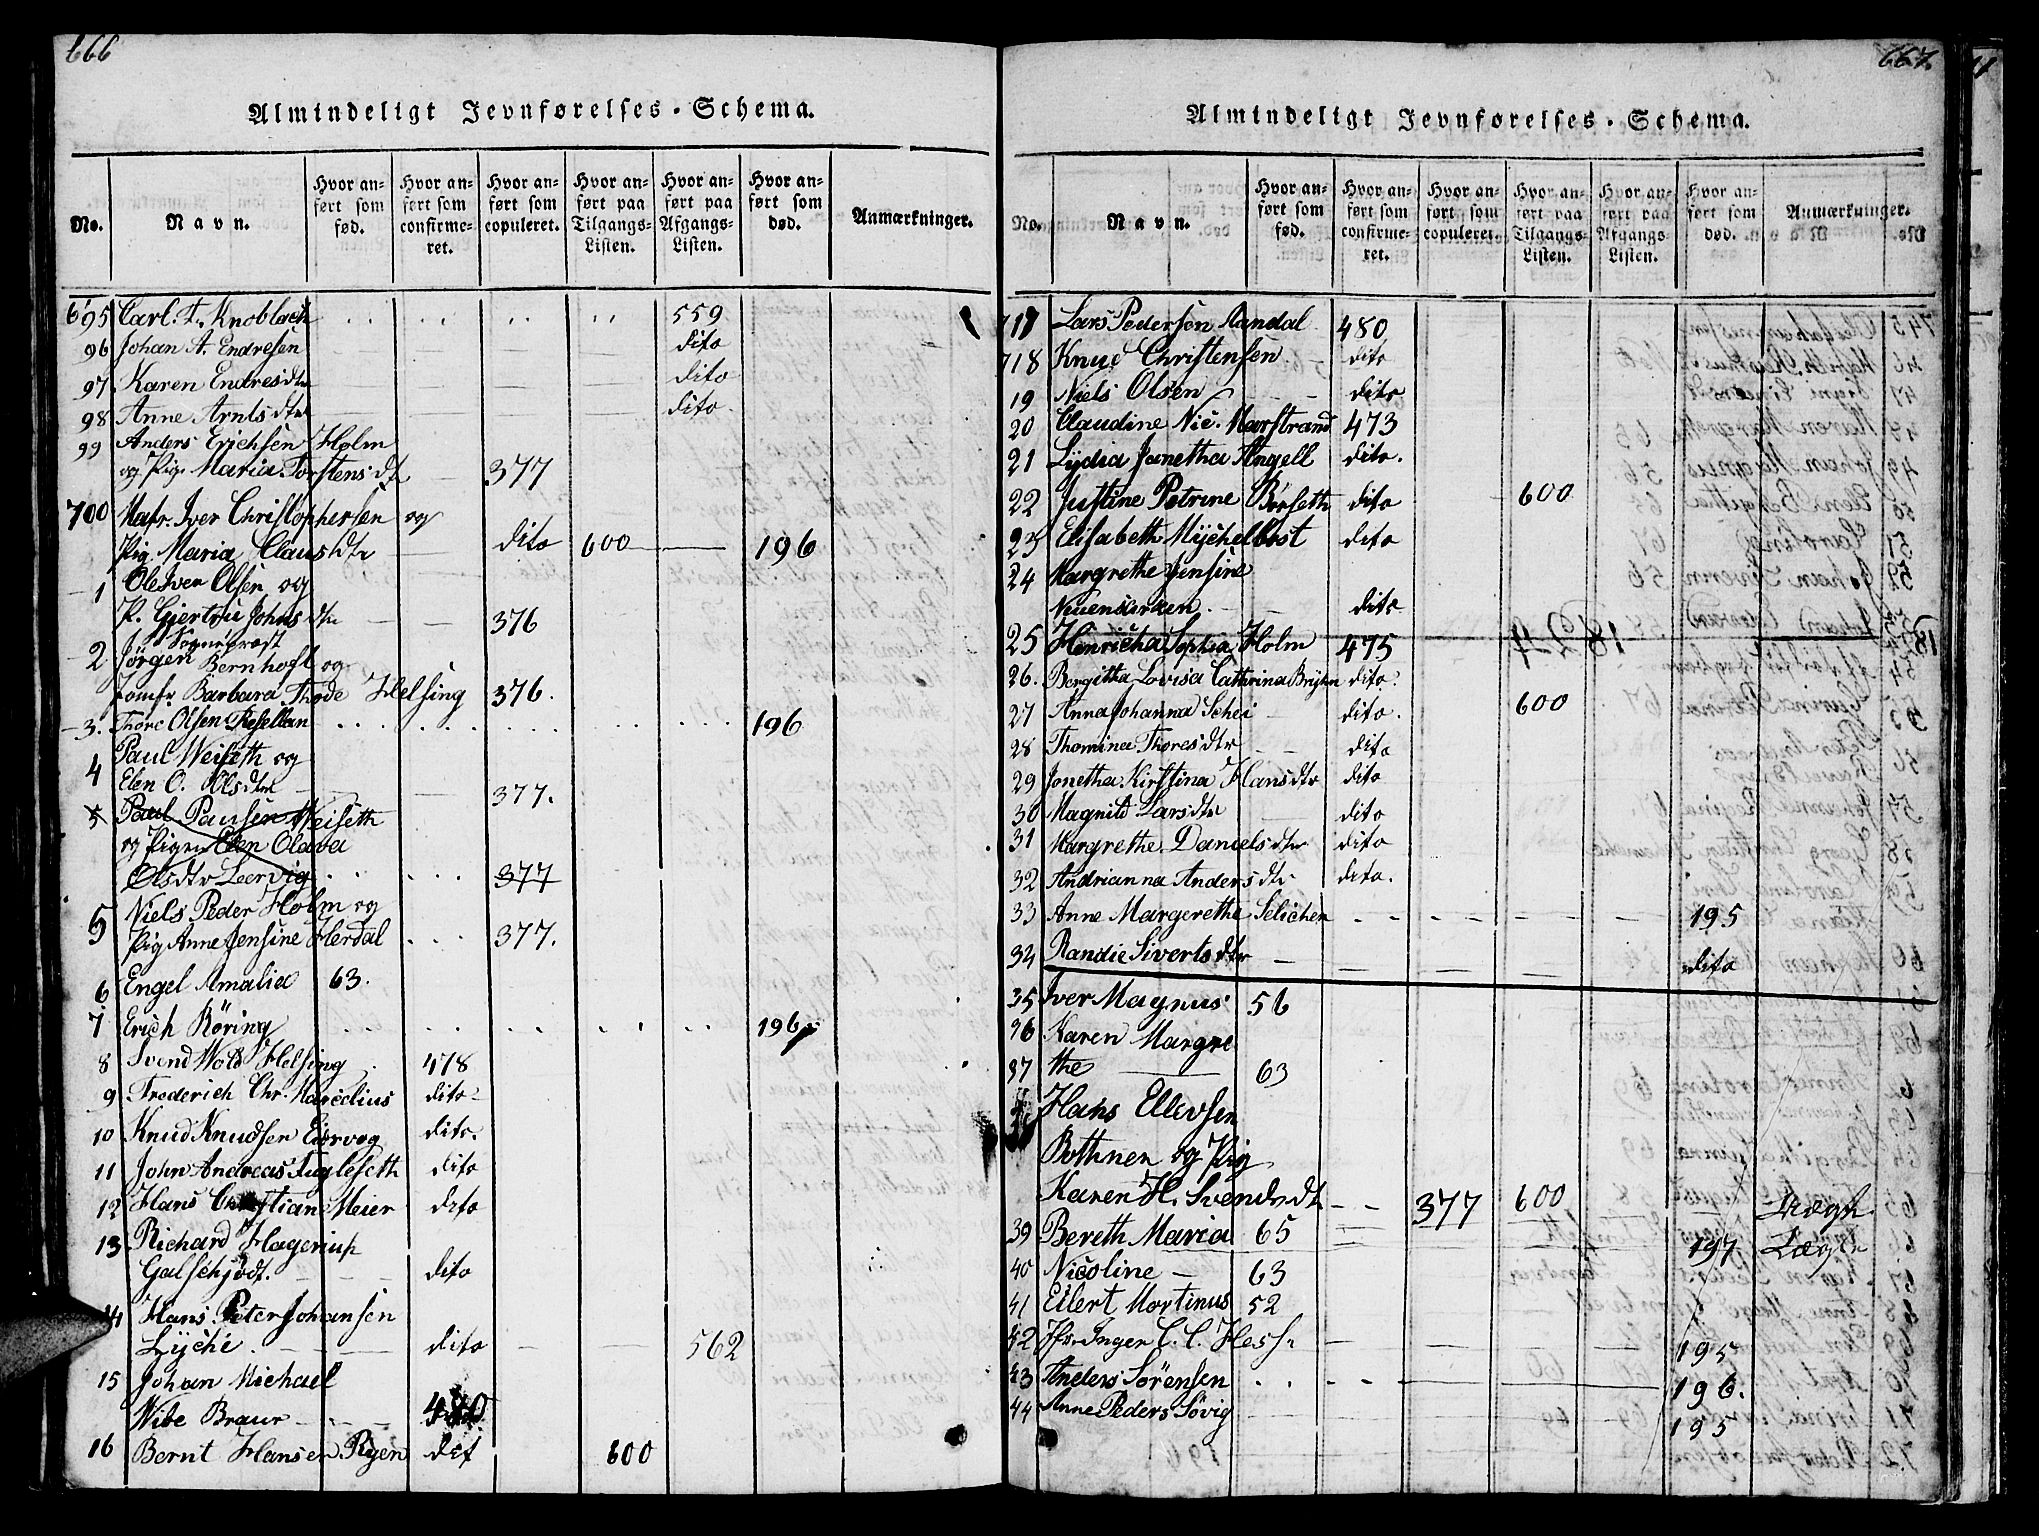 666
Almindeligt Jevnførelses-Schema.
No. Navn. Hvor anført som fød. Hvor anført som confirmeret. Hvor anført som copuleret. Hvor anført paa Tilgangs-Listen. Hvor anført paa Afgangs-Listen. Hvor anført som død. Anmærkninger.
695 Carl. F. Knoblach 559
96 Johan A. Endresen dito
97 Karen Endresdtr dito
98 Anne Arntsdtr dito
99 Anders Erichsen Holm
og Pig. Maria Torstensdt 377
700 Matr. Iver Christophersen og
Pig Maria Clausdtr dito 600 196
1 Ole Iver Olsen og
P. Gjertru Johnsdtr 376
Sognepræst
2 Jörgen Bernhoft og
Jomfr Barbara Thode Helsing 376.
3. Thore Olsen Resellan 196
4 Paul Weiseth og
Elen O. Olsdtr 377.
5 Paul Paulsen Weiseth
og Pigen Elen Olava
Olsdtr Leervig 377
5 Niels Peder Holm og
Pig Anne Jensine Herdal 377.
6 Engel Amalia 63.
7 Erich Röring 196
8 Svend Wold Helsing 478
9 Frederich Chr. Marcelius dito
10 Knud Knudsen Eörvog dito.
11 John Andreas Fugleseth dito
12 Hans Christian Meier dito
13 Richard Hagerup
Galschjödt. dito
14 Hans Peter Johansen
Lÿche dito 562
15 Johan Michael
Wibe Braur 480
16 Bernt Hansen Ryen dit 600
667.
Almindeligt Jevnførelses-Schema.
No. Navn. Hvor anført som fød. Hvor anført som confirmeret. Hvor anført som copuleret. Hvor anført paa Tilgangs-Listen. Hvor anført paa Afgangs-Listen. Hvor anført som død. Anmærkninger.
717 Lars Pedersen Aandal 480
718 Knud Christensen dito
19 Niels Olsen dito
20 Claudine Nic. Marstrand 473
21 Lydia Janetha Angell dito.
22 Justine Petrine Börseth dito 600
23 Elisabeth Mychelbost dito
24 Margrethe Jensine
dito
25 Henricha Sophia Holm 475
26. Bergitha Lovisa Cathrina dito.
27 Anna Johanna Schei dito. 600
28 Thomina Thoresdtr dito
29 Jonetha Kirstina Hansdtr dito
30 Magnild Larsdtr dito
31 Margrethe Danielsdtr dito
32 Andrianna Andersdtr dito.
33 Anne Margerethe Selichen 195
34 Randie Sivertsdtr dito
35 Iver Magnus 56
36 Karen Margre
37 the 63
Hans Ellevsen
Bothner og Pig
Karen H. Svendsdt 377 600
39 Bereth Maria 65 197
40 Nicoline 63
41 Eilert Mortinus 52
42 Jfr. Inger C. C. Hess 195
43 Anders Sörensen 196.
44 Anne Peders Sövig 195